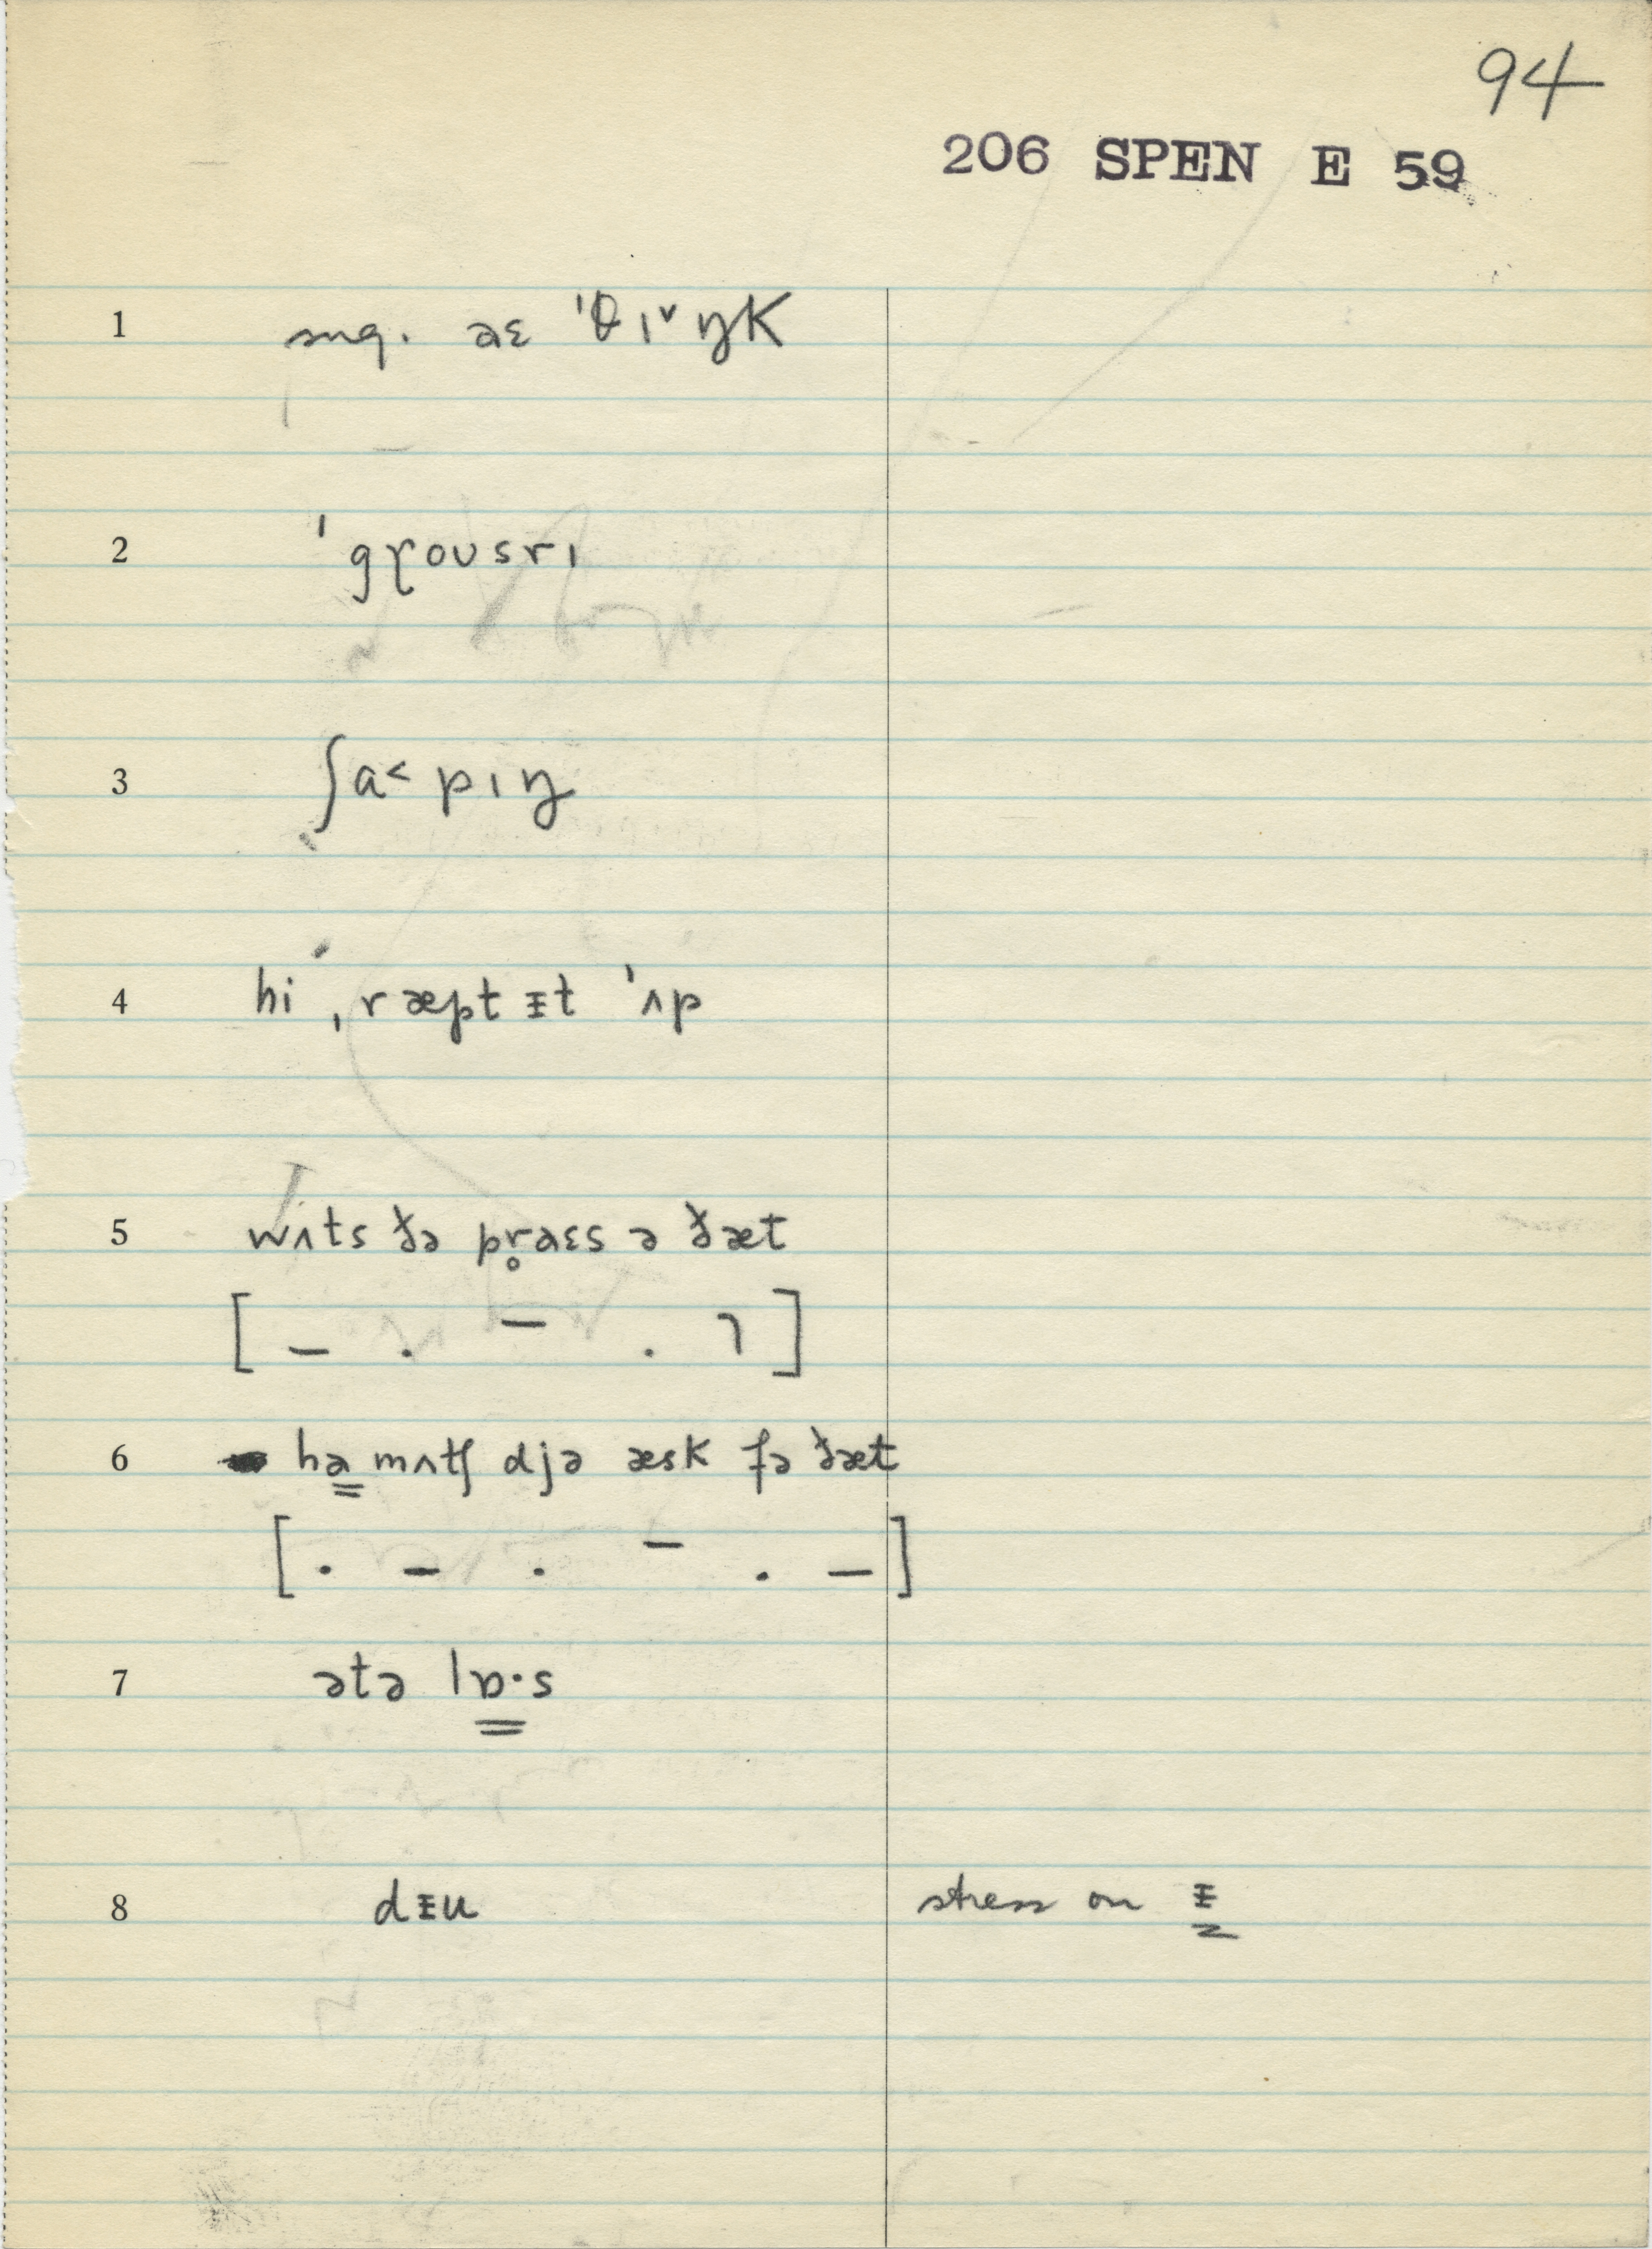 94
206 SPEN E 59
1 sug. aɛ ˈθɪ˅ ŋk
2 ˈgɼoʊsrɪ
3 ʃa˂ pɪŋ
4 hi ˌræpt ᵻt ˈʌp
5 wʌts ðə pr̥aɛs ə ðæt
[ – . – . ⌝ ]
6 ha mʌtʃ djə æsk fə ðæt
[ . – . – . – ]
7 ətə lɒ·s
8 dᵻu stress on ᵻ